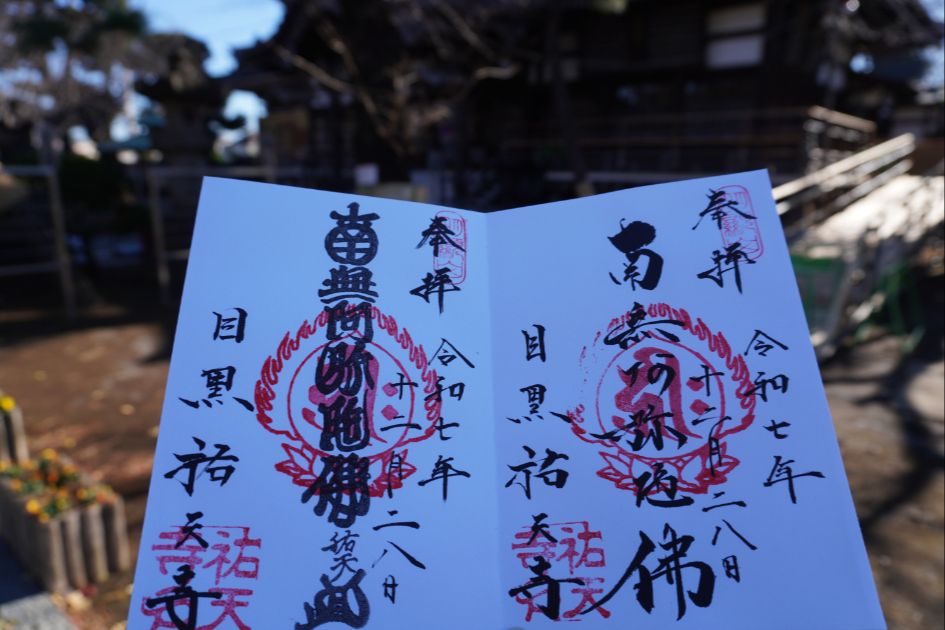 奉拝
令和七年
十二月二八日
南無阿弥陀佛
目黒
祐天寺
奉拝
令和七年
十二月二八日
南無阿弥陀佛
祐天
目黒
祐天寺